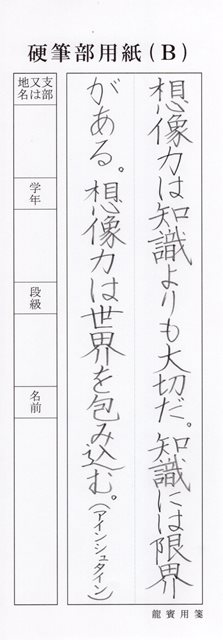 硬筆部用紙(B)
想像力は知識よりも大切だ。知識には限界
がある。想像力は世界を包み込む。(アインシュタイン)
支部又は地名
学年
段級
名前
龍賓用箋